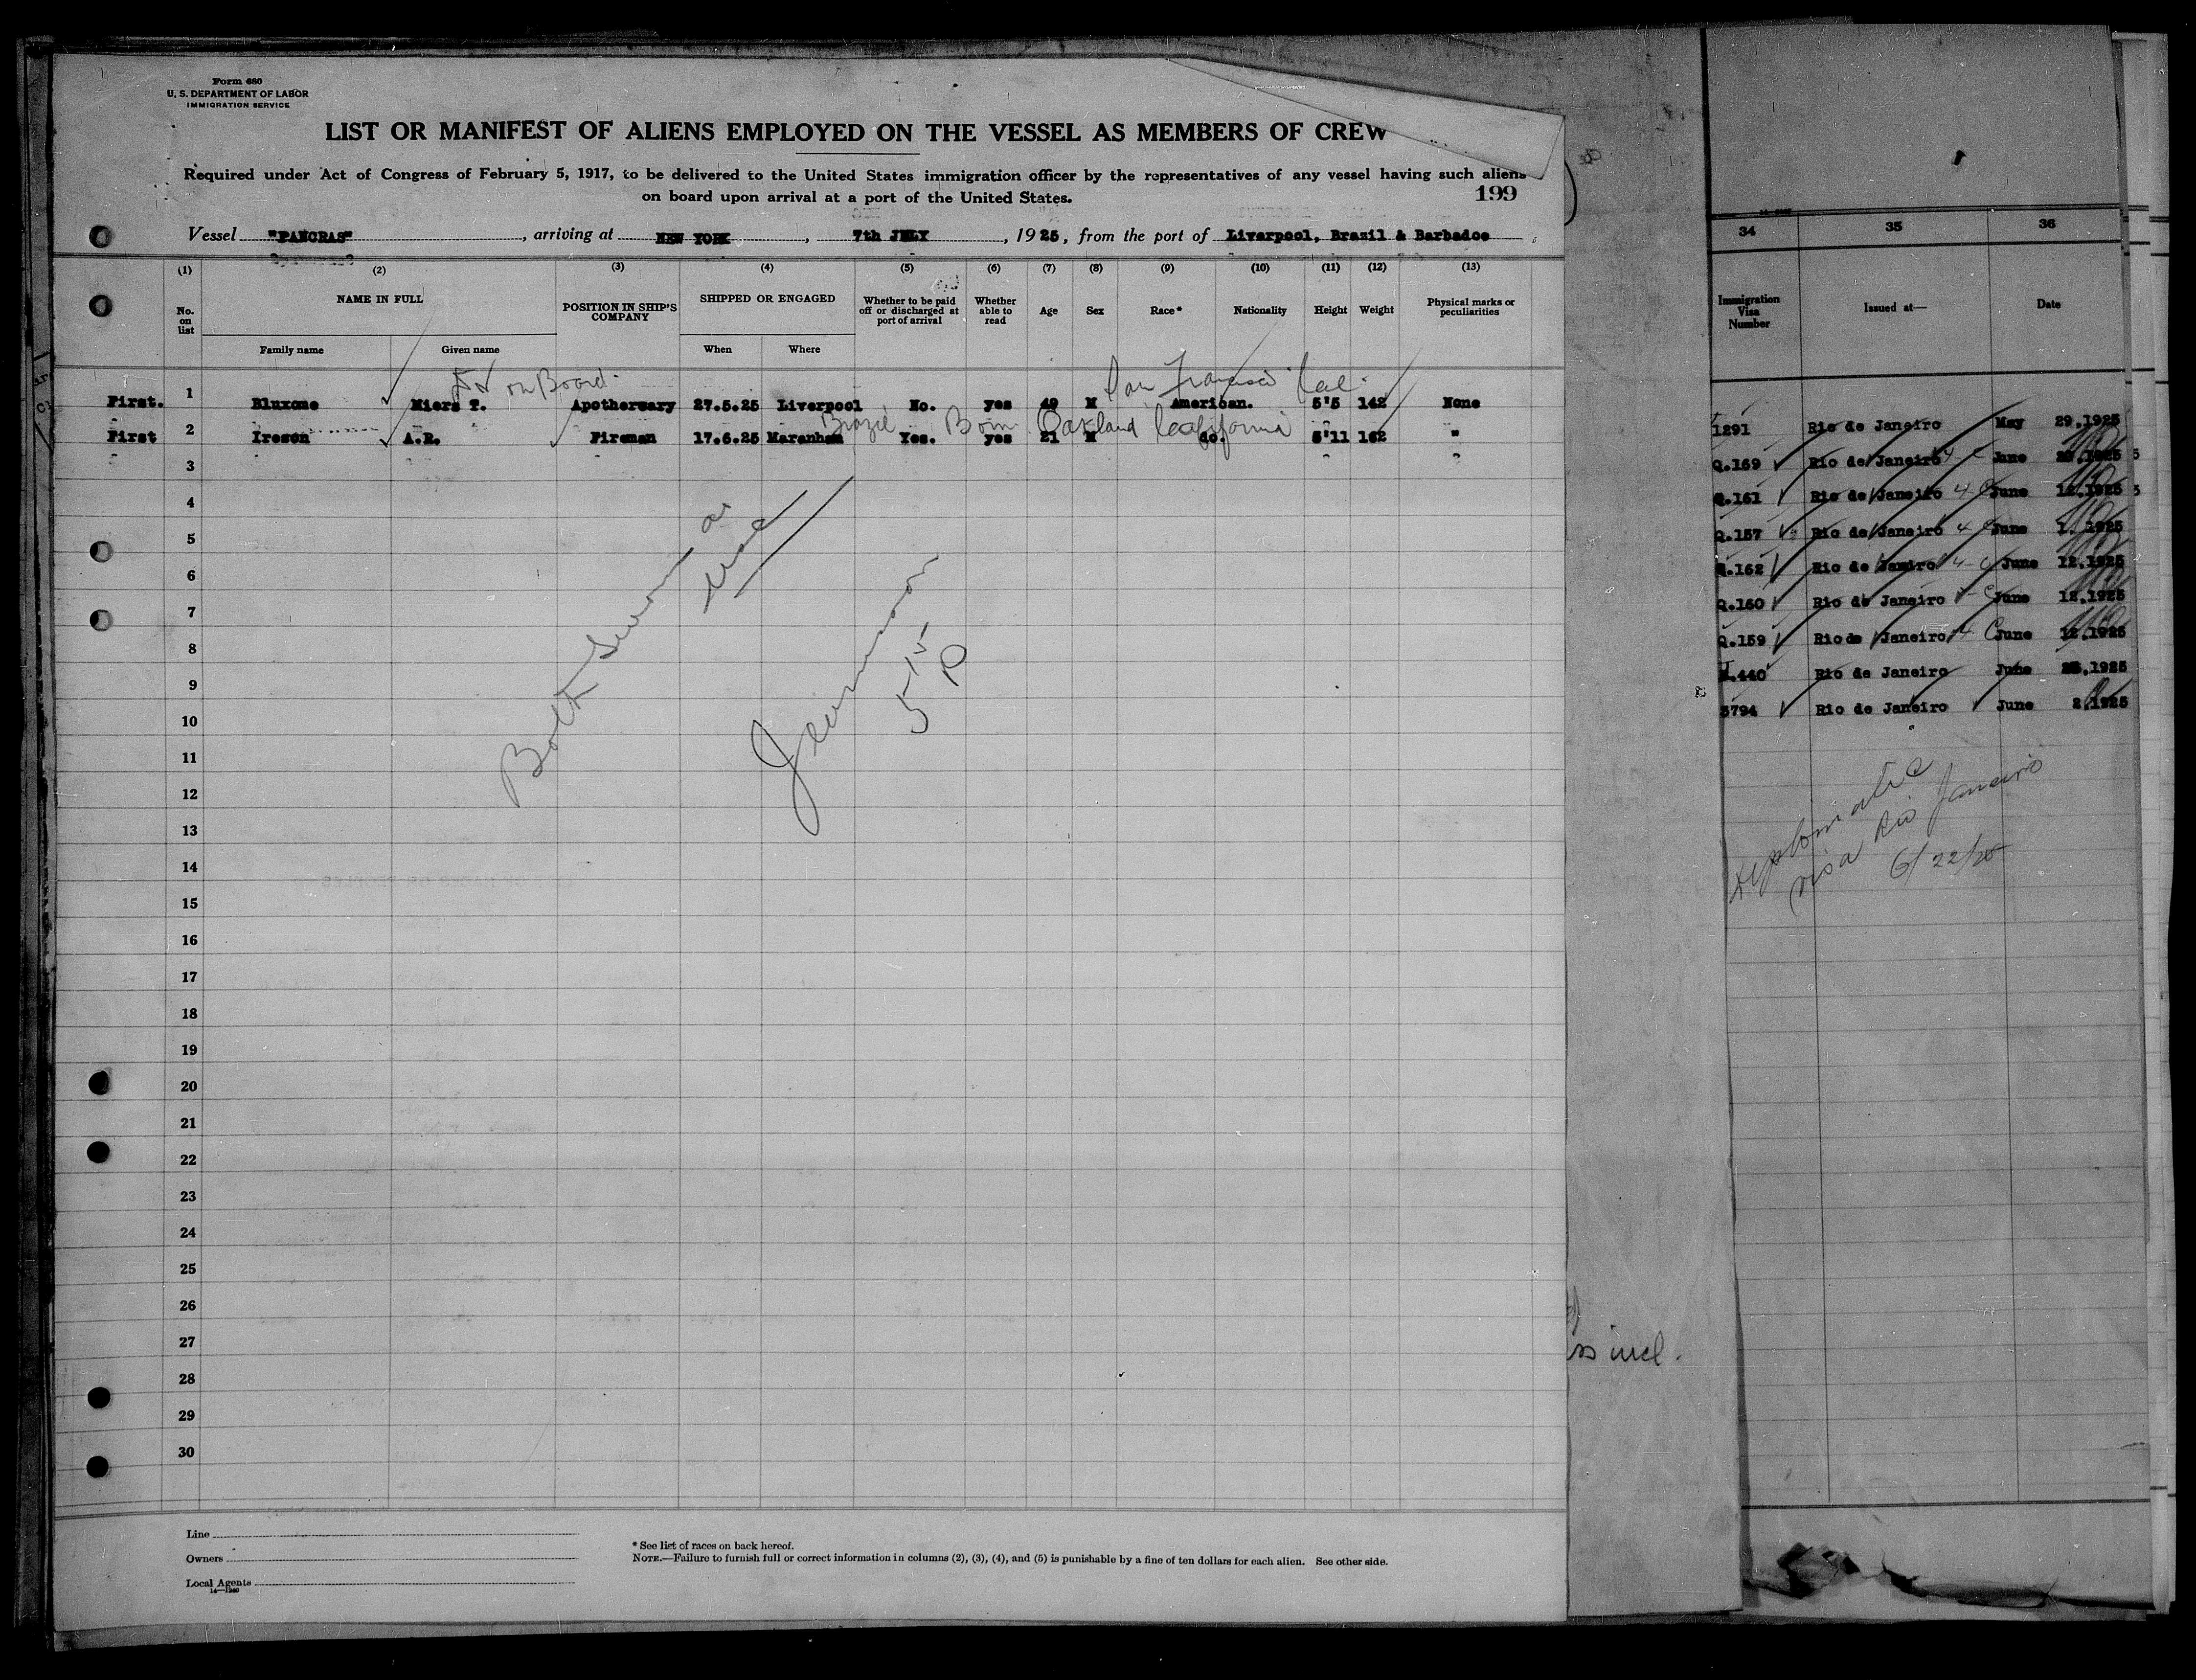 Form 680
U. S. DEPARTMENT OF LABOR
IMMIGRATION SERVICE
LIST OR MANIFEST OF ALIENS EMPLOYED ON THE VESSEL AS MEMBERS OF CREW
Required under Act of Congress of February 5, 1917, to be delivered to the United States immigration officer by the representatives of any vessel having such aliens
on board upon arrival at a port of the United States.
199
Vessel "PANCRAS", arriving at NEW YORK, 7th JULY, 1925, from the port of Liverpool, Brazil & Barbados
(1) (2) (3) (4) (5) (6) (7) (8) (9) (10) (11) (12) (13)
No. on list NAME IN FULL POSITION IN SHIP'S COMPANY SHIPPED OR ENGAGED Whether to be paid off or discharged at port of arrival Whether able to read Age Sex Race* Nationality Height Weight Physical marks or peculiarities
Family name Given name When Where
on Board. San Francisco Cal.
First. 1 Bluxome Miers T. Apothecary 27.5.25 Liverpool No. yes 49 M American. 5'5 142 None
Brazil Born Oakland California
First 2 Ireson A.R. Fireman 17.6.25 Maranham Yes. yes 21 M do. 5'11 162 "
3
4
5
6
7
8
9
10
11
12
13
14
15
16
17
18
19
20
21
22
23
24
25
26
27
28
29
30
Both
as
5 15
P
Line
Owners
Local Agents
14—1240
* See list of races on back hereof.
NOTE.—Failure to furnish full or correct information in columns (2), (3), (4), and (5) is punishable by a fine of ten dollars for each alien. See other side.
incl.
34 35 36
Immigration Visa Number Issued at— Date
1291 Rio de Janeiro May 29.1925
Q.169 Rio de Janeiro June 1925
Q.161 Rio de Janeiro June 12.1925
Q.157 Rio de Janeiro June 1925
Q.162 Rio de Janeiro June 12.1925
Q.160 Rio de Janeiro June 12.1925
Q.159 Rio de Janeiro June 12.1925
440 Rio de Janeiro June 1925
3794 Rio de Janeiro June 2.1925
Diplomatic
visa Rio Janeiro
6/22/25